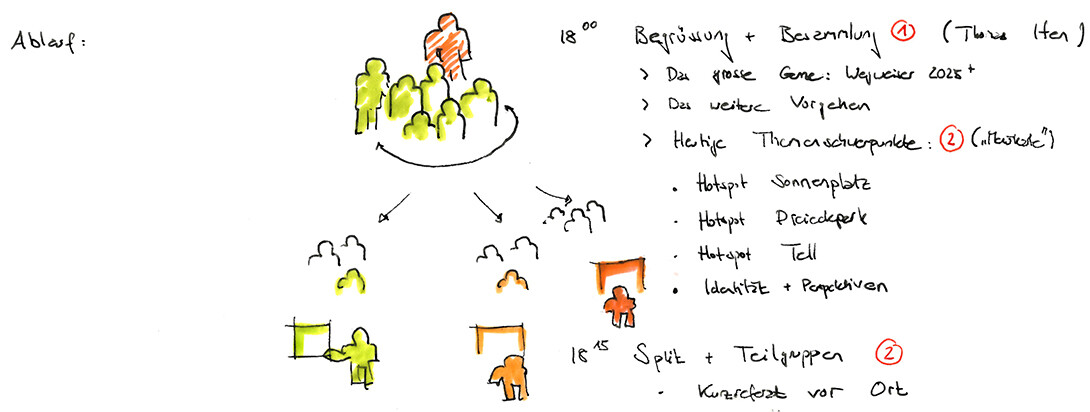 Ablauf:
18⁰⁰ Begrüssung + Besammlung ① (Thomas Iten)
> Das grosse Ganze: Wegweiser 2025+
> Das weitere Vorgehen
> Heutige Themenschwerpunkte: ②
• Hotspot Sonnenplatz
• Hotspot Dreieckpark
• Hotspot Tell
• Identität + Perspektiven
18¹⁵ Split + Teilgruppen ②
• Kurzreferat vor Ort